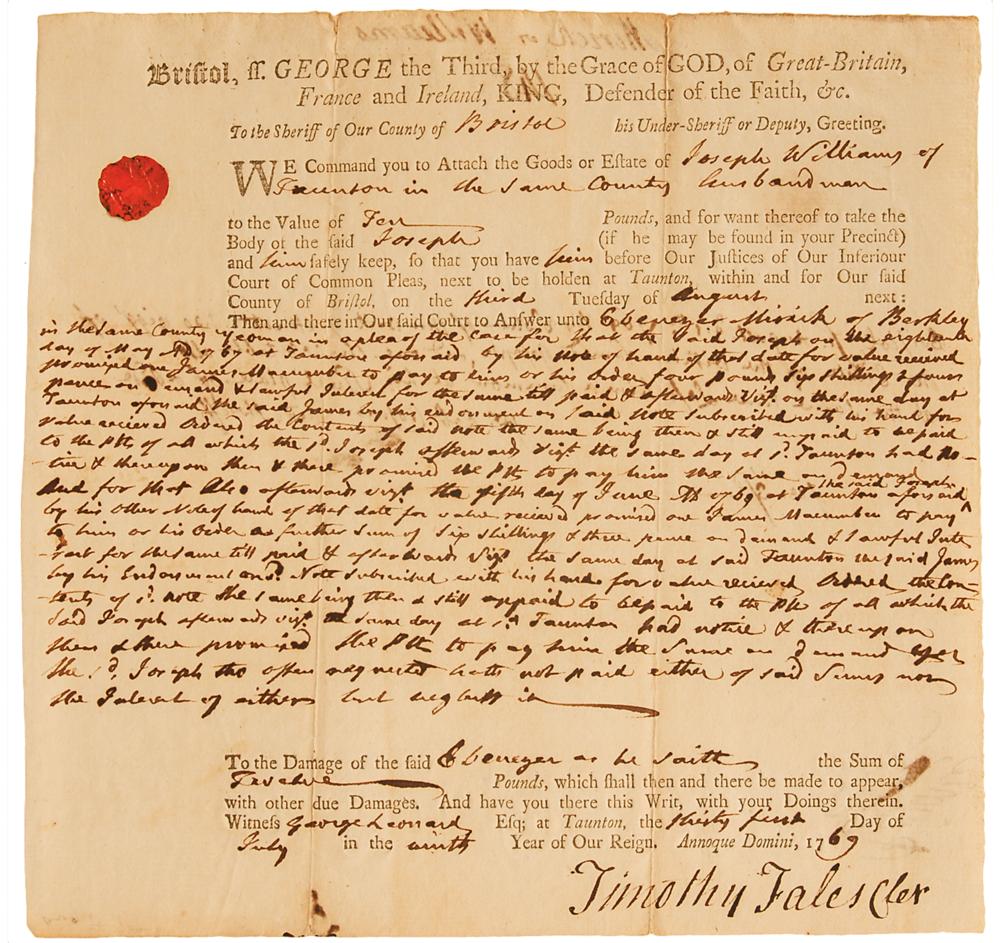 Bristol, ss. GEORGE the Third, by the Grace of GOD, of Great-Britain,
France and Ireland, KING, Defender of the Faith, &c.
To the Sheriff of Our County of Bristol his Under-Sheriff or Deputy, Greeting.
WE Command you to Attach the Goods or Estate of Joseph Williams of
Taunton in the same County husbandman
to the Value of Ten Pounds, and for want thereof to take the
Body of the said Joseph (if he may be found in your Precinct)
and him safely keep, so that you have him before Our Justices of Our Inferiour
Court of Common Pleas, next to be holden at Taunton, within and for Our said
County of Bristol, on the third Tuesday of August next:
Then and there in Our said Court to Answer unto Ebenezer Mirick of Berkley
in the same County yeoman in a plea of the case for that the said Joseph on the eighteenth
day of May AD 1769 at Taunton aforsaid by his note of hand of that date for value received
promised one James Macumber to pay to him or his order four pounds six shillings & four
pence on Demand & Lawful Interest for the same till paid & afterwards viz.t on the same day at
Taunton aforsaid the said James by his endorsment on said note subscribed with his hand for
value recieved Ordered the Contents of said note the same being then & still unpaid to be paid
to the Plt of all which the s.d Joseph afterwards viz.t the same day at s.d Taunton had no-
tice & thereupon then & there promised the Plt to pay him the same on demand
the said Joseph
And for that Also afterwards viz.t the fifth day of June AD 1769 at Taunton aforsaid
by his Other Note of hand of that date for value recieved promised one James Macumber to pay
to him or his Order a further Sum of Six shillings & three pence on demand & Lawful Inte
rest for the same till paid & afterwards viz.t the same day at said Taunton the said James
by his Endorsment on s.d Note subscribed with his hand for value recieved Ordered the Con-
tents of s.d note the same being then & still unpaid to be paid to the Plt of all which the
said Joseph afterwards viz.t same day at s.d Taunton had notice & thereupon
then & there promised the Plt to pay him the Same on Demand yet
the s.d Joseph tho often requested hath not paid either of said Sums nor
the Interest of either but neglects it
To the Damage of the said Ebenezer as he saith the Sum of
Twelve Pounds, which shall then and there be made to appear,
with other due Damages. And have you there this Writ, with your Doings therein.
Witness George Leonard Esq; at Taunton, the thirty first Day of
July in the ninth Year of Our Reign. Annoque Domini, 1769
Timothy Fales Cler